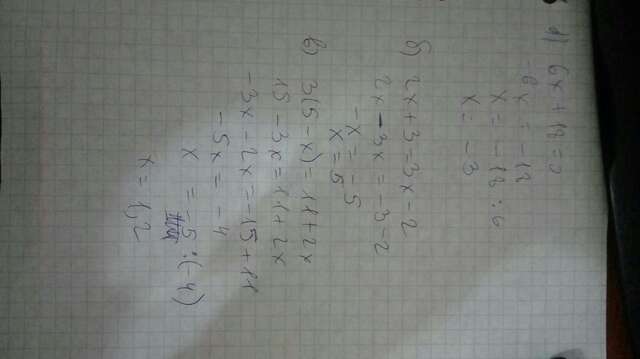 а) 6x + 18 = 0
-6x = -18
x = -18 : 6
x = -3
б) 2x + 3 = 3x - 2
2x - 3x = -3 - 2
-x = -5
x = 5
в) 3(5 - x) = 11 + 2x
15 - 3x = 11 + 2x
-3x - 2x = -15 + 11
-5x = -4
x = -5 : (-4)
x = 1,2